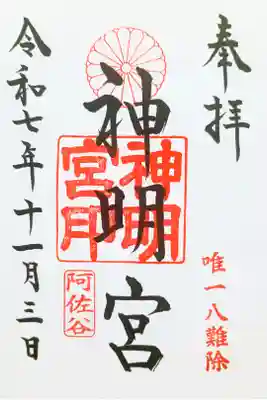 奉拝
唯一八難除
神明宮
神明宮
阿佐谷
令和七年十一月三日